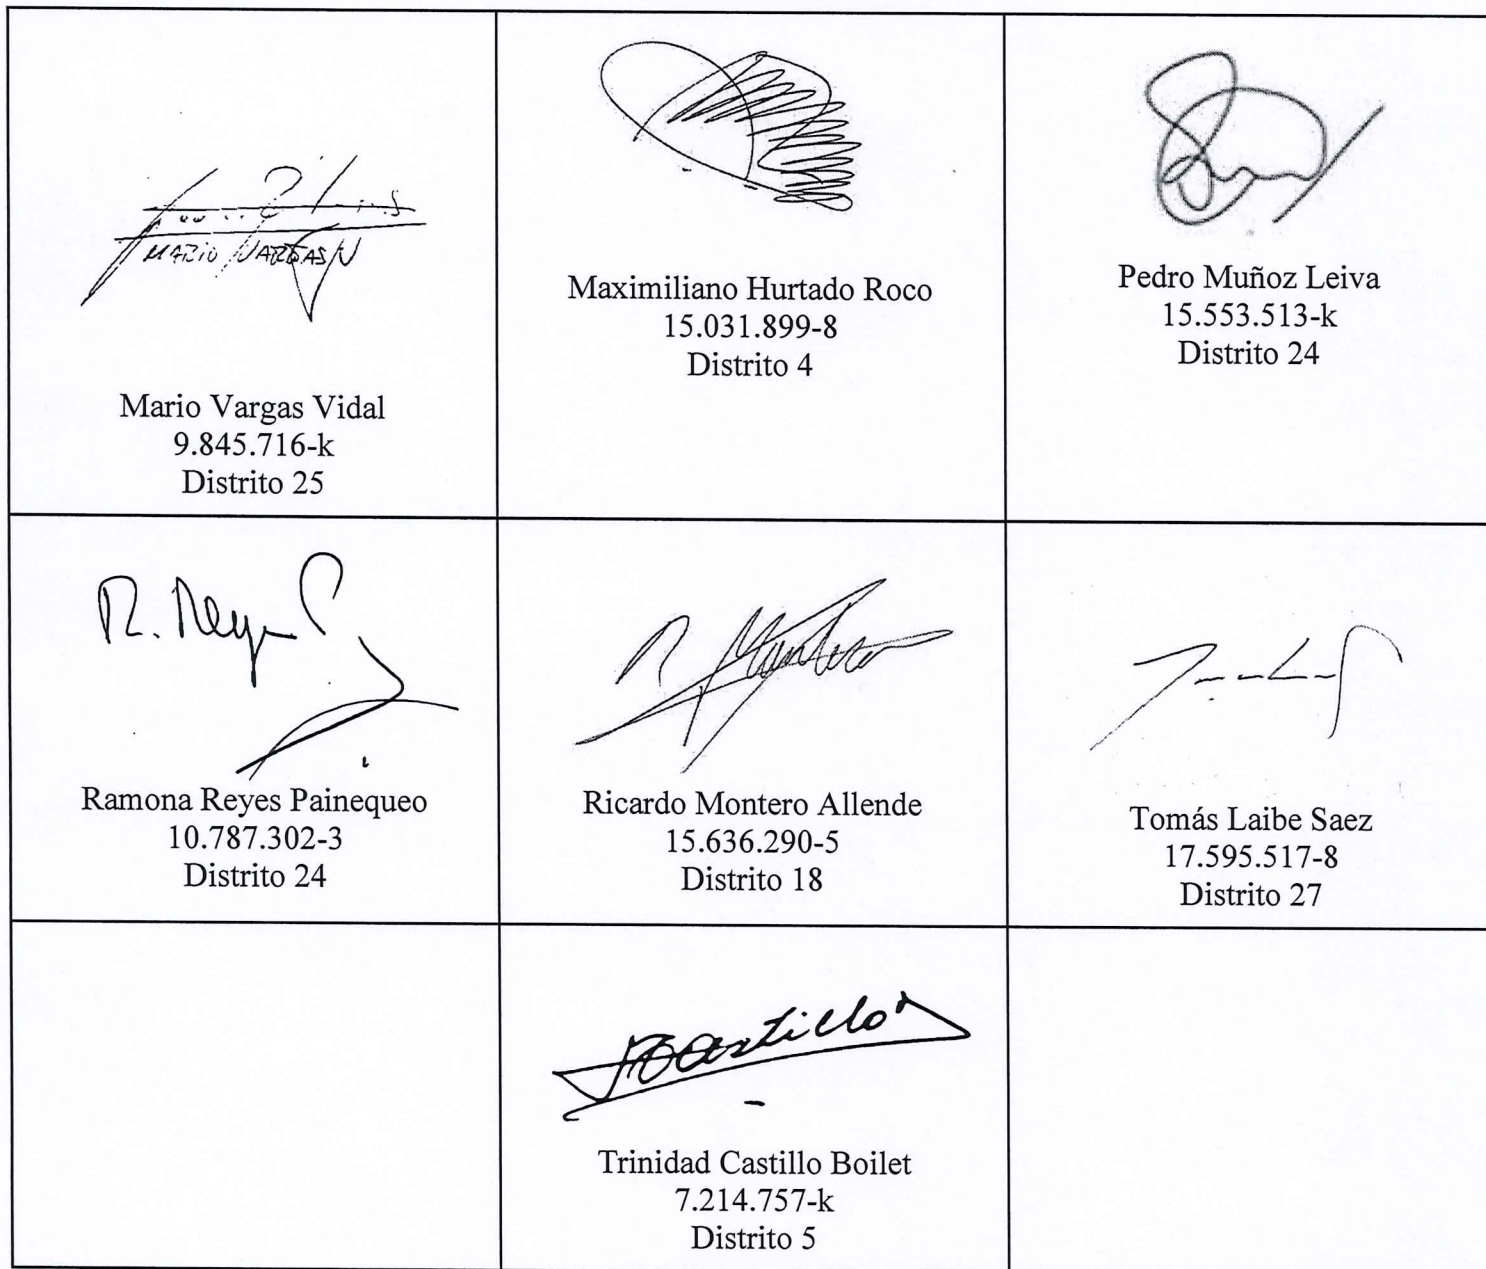 MARIO VARGAS V
Mario Vargas Vidal
9.845.716-k
Distrito 25
Maximiliano Hurtado Roco
15.031.899-8
Distrito 4
Pedro Muñoz Leiva
15.553.513-k
Distrito 24
R. Reyes
Ramona Reyes Painequeo
10.787.302-3
Distrito 24
R Montero
Ricardo Montero Allende
15.636.290-5
Distrito 18
Tomás Laibe Saez
17.595.517-8
Distrito 27
Castillo
Trinidad Castillo Boilet
7.214.757-k
Distrito 5